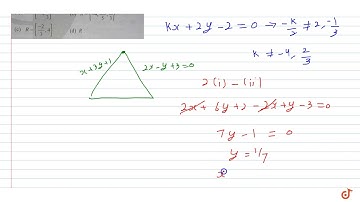 kx + 2y - 2 = 0 ⇒ -k/2 ≠ 2, -1/3
k ≠ -4, 2/3
x+3y+1
2x-y+3=0
2(i) - (ii)
2x + 6y + 2 - 2x + y - 3 = 0
7y - 1 = 0
y = 1/7
x